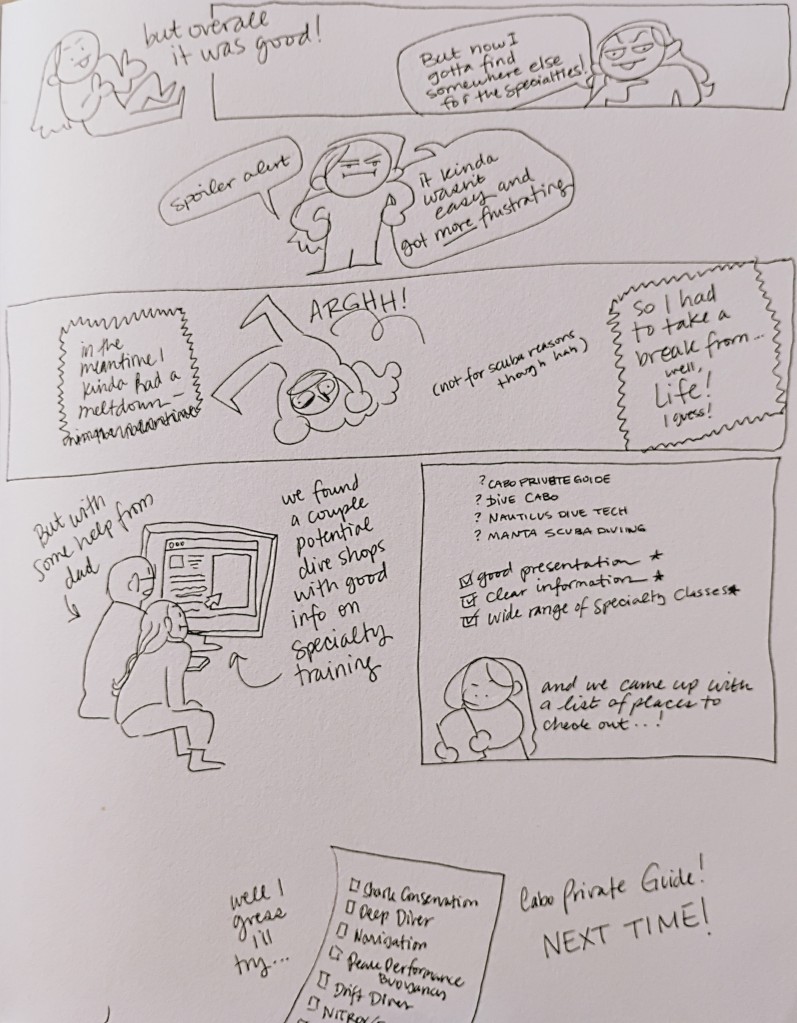 but overall
it was good!
But now I
gotta find
somewhere else
for the specialties!
Spoiler alert
it kinda
wasn't
easy and
got more frustrating
in the
meantime I
kinda had a
meltdown -
ARGHH!
(not for scuba reasons
though hah)
So I had
to take a
break from...
well,
Life!
I guess!
But with
some help from
dad
we found
a couple
potential
dive shops
with good
info on
specialty
training
? CABO PRIVATE GUIDE
? DIVE CABO
? NAUTILUS DIVE TECH
? MANTA SCUBA DIVING
good presentation
clear information
wide range of specialty classes
and we came up with
a list of places to
check out...!
well I
guess
I'll
try...
Shark Conservation
Deep Diver
Navigation
Peak Performance
Buoyancy
Drift Diver
NITROX
Cabo Private Guide!
NEXT TIME!